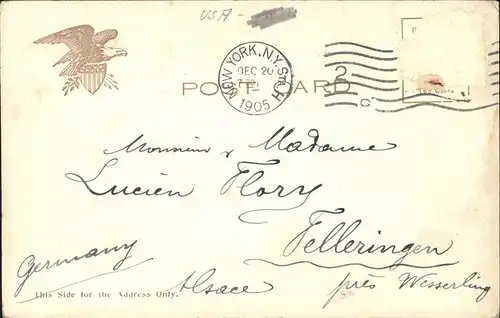 USA
NEW YORK, N.Y. STA. H
DEC 20
1905
2
C
P
POST CARD
Monsieur & Madame
Lucien Flory
Felleringen
Germany
Alsace
près Wesserling
This Side for the Address Only.